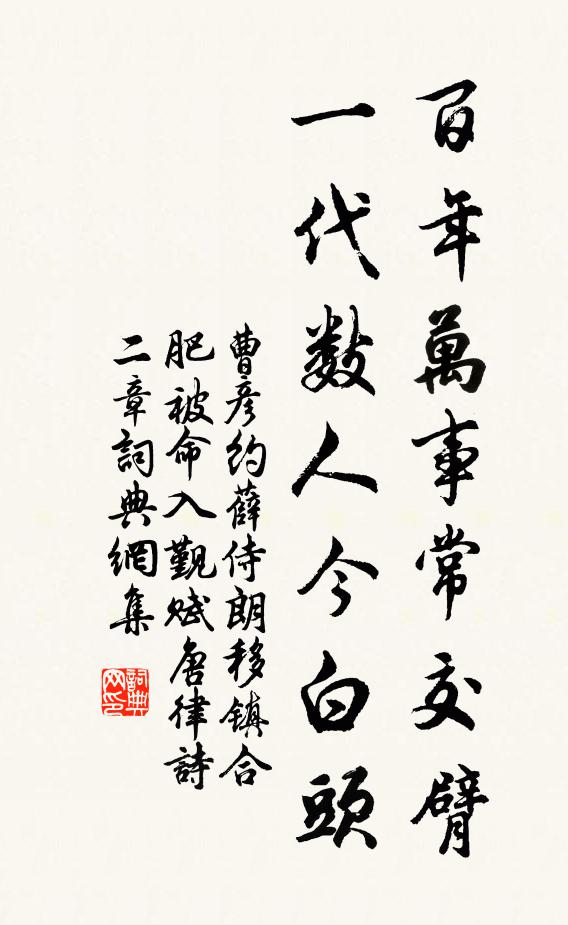 百年萬事常交臂
一代數人今白頭
曹彦約薛侍朗移鎮合
肥被命入覲賦唐律詩
二章詞典網集
詞典
网印